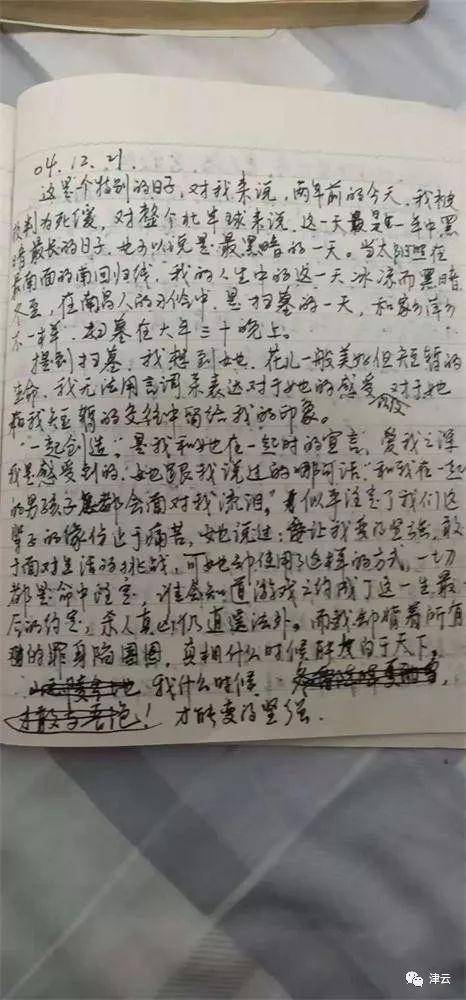 04.12.21.
这是个特别的日子，对我来说，两年前的今天，我被
判为死缓，对整个北半球来说，这一天是一年中黑
暗最长的日子，也可以说是最黑暗的一天。当太阳在
最南面的南回归线，我的人生中的这一天冰凉而黑暗
冬至，在南昌人的习俗中，是扫墓的一天，和家乡萍乡
不一样，扫墓在大年三十晚上。
提到扫墓，我想到她，花儿一般美好但短暂的
生命，我无法用言词来表达对于她的感受，对于她
和我短暂的交往中留给我的印象。
"一起创造"，是我和她在一起时的宣言，爱我之深
我是感受到的，她跟我说过的哪句话"和我在一起
的男孩子都会面对我流泪，"似乎注定了我们这
辈子的缘份止于痛苦，她说过：要让我变的坚强，敢
于面对生活的挑战，可她却使用了这样的方式，一切
都是命中注定，谁会知道游戏之约成了这一生最
后的约定，杀人真凶仍逍遥法外。而我却背着所有
的罪身陷囹圄，真相什么时候能大白于天下。
我什么时候
才能变的坚强.
津云